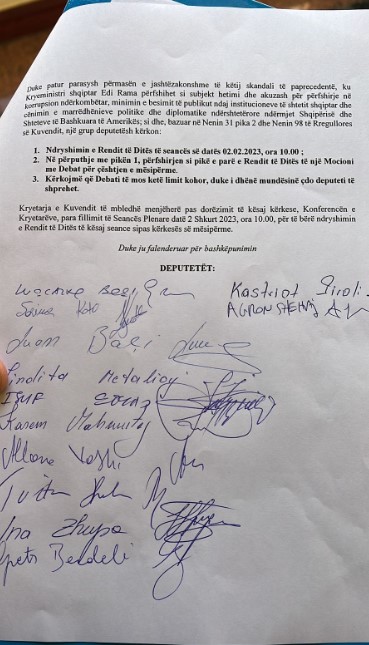 Duke patur parasysh përmasën e jashtëzakonshme të këtij skandali të paprecedentë, ku
Kryeministri shqiptar Edi Rama përfshihet si subjekt hetimi dhe akuzash për përfshirje në
korrupsion ndërkombëtar, minimin e besimit të publikut ndaj institucioneve të shtetit shqiptar dhe
cënimin e marrëdhënieve politike dhe diplomatike ndërshtetërore ndërmjet Shqipërisë dhe
Shteteve të Bashkuara të Amerikës; si dhe, bazuar në Nenin 31 pika 2 dhe Nenin 98 të Rregullores
së Kuvendit, një grup deputetësh kërkon:
1. Ndryshimin e Rendit të Ditës të seancës së datës 02.02.2023, ora 10.00 ;
2. Në përputhje me pikën 1, përfshirjen si pikë e parë e Rendit të Ditës një Mocioni
me Debat për çështjen e mësipërme.
3. Kërkojmë që Debati të mos ketë limit kohor, duke i dhënë mundësinë çdo deputeti të
shprehet.
Kryetarja e Kuvendit të mbledhë menjëherë pas dorëzimit të kësaj kërkese, Konferencën e
Kryetarëve, para fillimit të Seancës Plenare datë 2 Shkurt 2023, ora 10.00, për të bërë ndryshimin
e Rendit të Ditës të kësaj seance sipas kërkesës së mësipërme.
Duke ju falenderuar për bashkëpunimin
DEPUTETËT:
Kastriot Piroli
AGRON SHEHAJ
Koto
Metaliaj
Zhupa